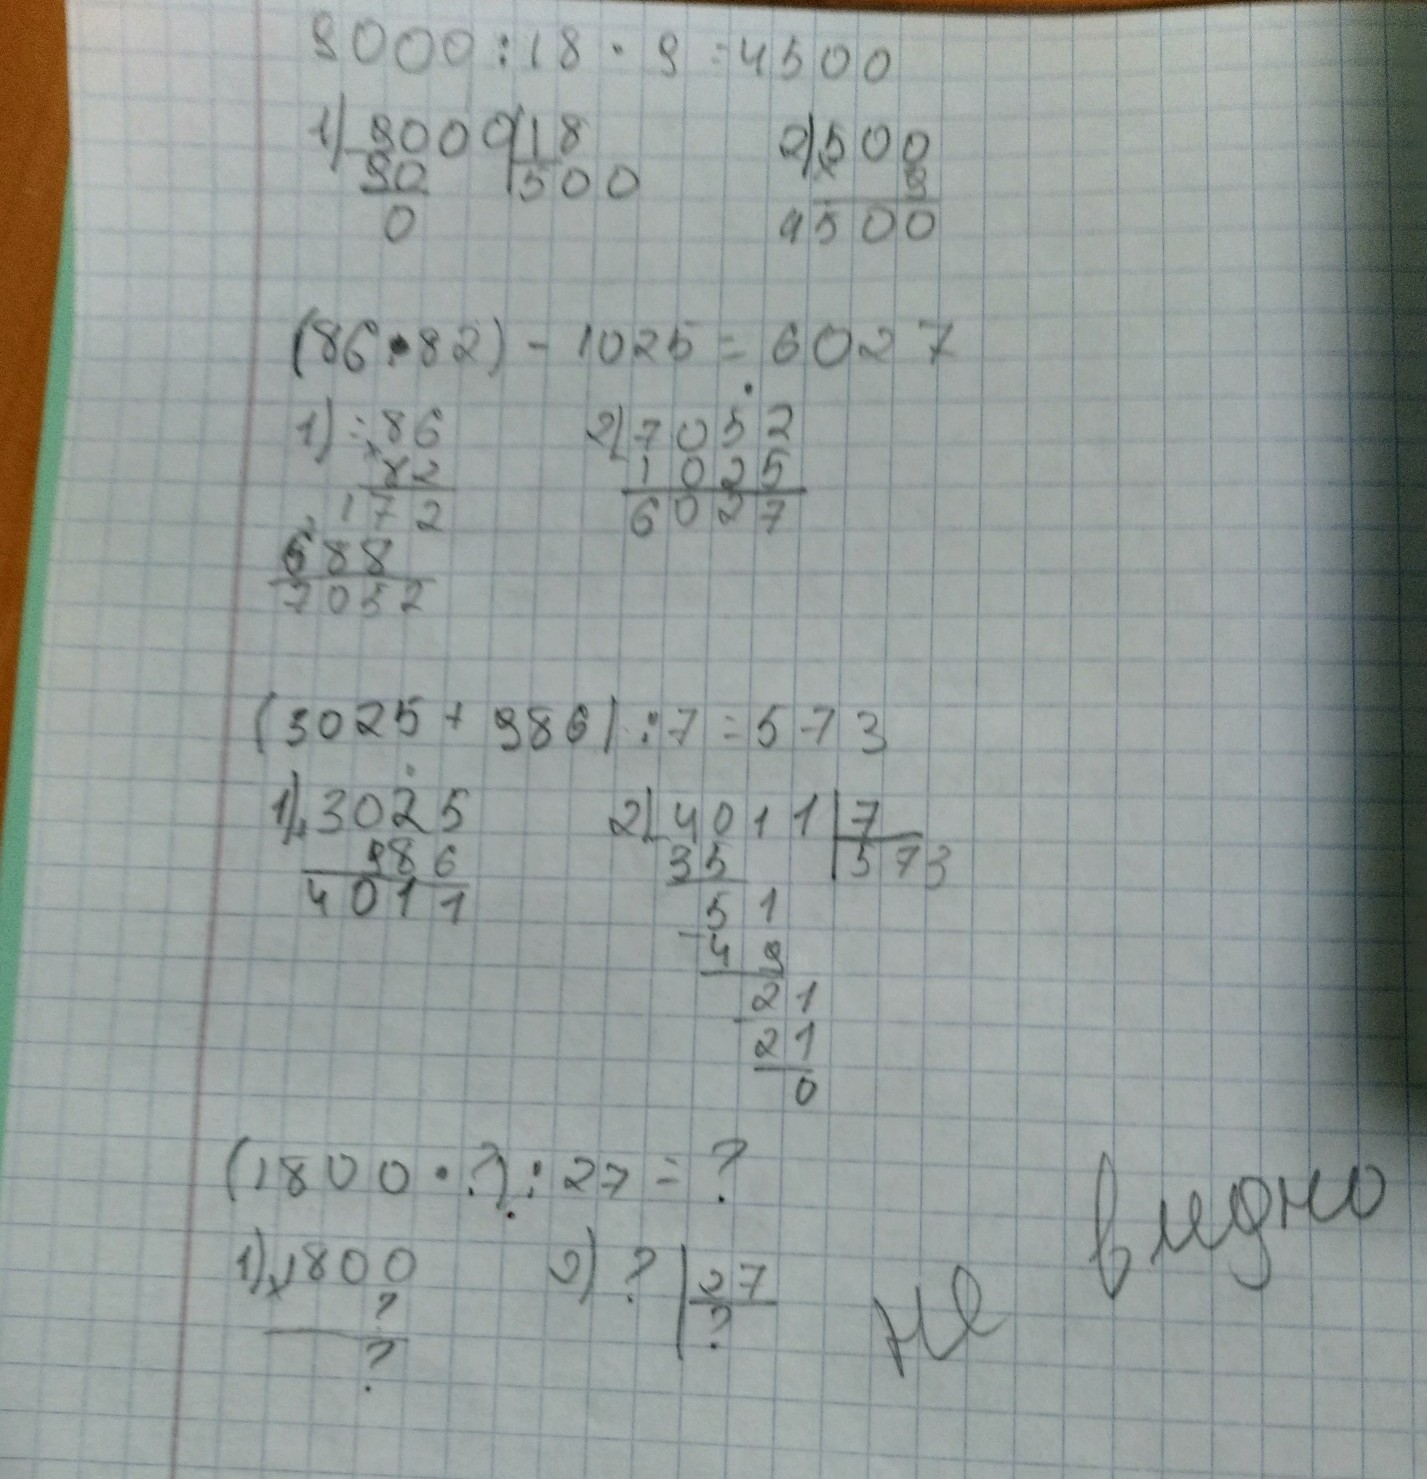 9000:18·9=4500
1) 9000 18 2) 500
90 500 9
0 4500
(86·82)-1025=6027
1) 86 2) 7052
82 1025
172 6027
688
7052
(3025+986):7=573
1) 3025 2) 4011 7
986 35 573
4011 51
49
21
21
0
(1800·?):27=?
1) 1800 2) ? 27
? ?
?
не видно